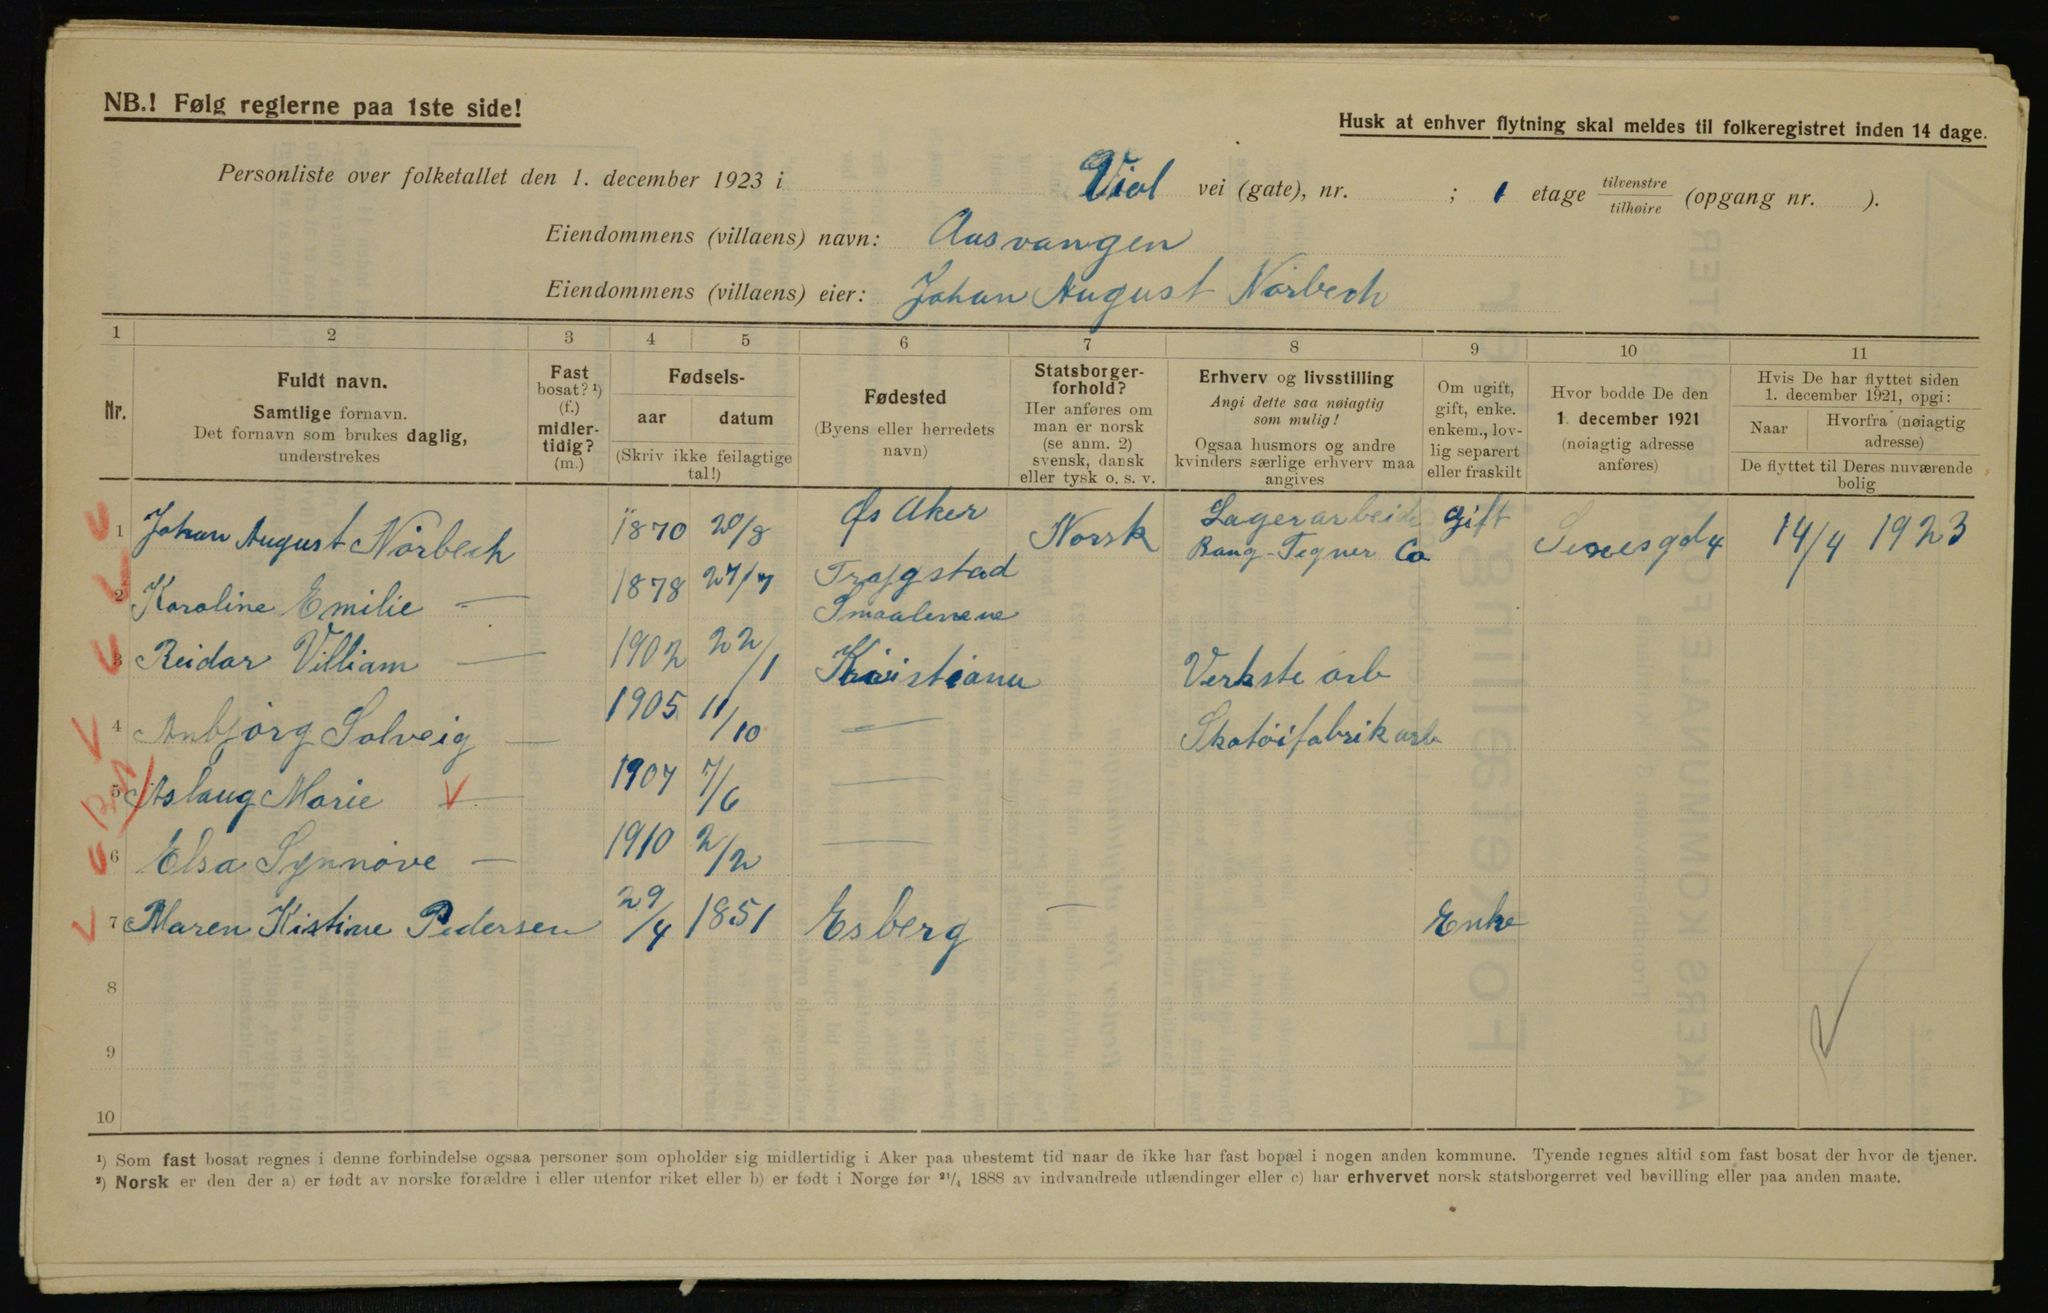 NB.! Følg reglerne paa 1ste side!
Husk at enhver flytning skal meldes til folkeregistret inden 14 dage.
Personliste over folketallet den 1. december 1923 i Viol vei (gate), nr. ; 1 etage tilvenstre / tilhøire (opgang nr. ).
Eiendommens (villaens) navn: Aasvangen
Eiendommens (villaens) eier: Johan August Nörbech
1 2 3 4 5 6 7 8 9 10 11
Nr.
Fuldt navn.
Samtlige fornavn.
Det fornavn som brukes daglig,
understrekes
Fast
bosat? ¹)
(f.)
midler-
tidig?
(m.)
Fødsels-
aar datum
(Skriv ikke feilagtige
tal!)
Fødested
(Byens eller herredets
navn)
Statsborger-
forhold?
Her anføres om
man er norsk
(se anm. 2)
svensk, dansk
eller tysk o. s. v.
Erhverv og livsstilling
Angi dette saa nøiagtig
som mulig!
Ogsaa husmors og andre
kvinders særlige erhverv maa
angives
Om ugift,
gift, enke.
enkem., lov-
lig separert
eller fraskilt
Hvor bodde De den
1. december 1921
(nøiagtig adresse
anføres)
Hvis De har flyttet siden
1. december 1921, opgi:
Naar
Hvorfra (nøiagtig
adresse)
De flyttet til Deres nuværende
bolig
1 Johan August Nörbech 1870 20/8 Øs Aker Norsk Lagerarbeid gift 14/4 1923
Bang-Tegner Co
2 Karoline Emilie — 1878 27/7 Trøgstad
Smaalenene
3 Reidar Villiam — 1902 22/1 Kristiania Verkste arb
4 Anbjørg Solveig — 1905 11/10 — Skotöifabrik arb
5 Aslaug Marie — 1907 7/6 —
6 Elsa Synnöve — 1910 2/2 —
7 Maren Kistine Pedersen 29/4 1851 Esberg — Enke
8
9
10
¹) Som fast bosat regnes i denne forbindelse ogsaa personer som opholder sig midlertidig i Aker paa ubestemt tid naar de ikke har fast bopæl i nogen anden kommune. Tyende regnes altid som fast bosat der hvor de tjener.
²) Norsk er den der a) er født av norske forældre i eller utenfor riket eller b) er født i Norge før ²¹/₄ 1888 av indvandrede utlændinger eller c) har erhvervet norsk statsborgerret ved bevilling eller paa anden maate.